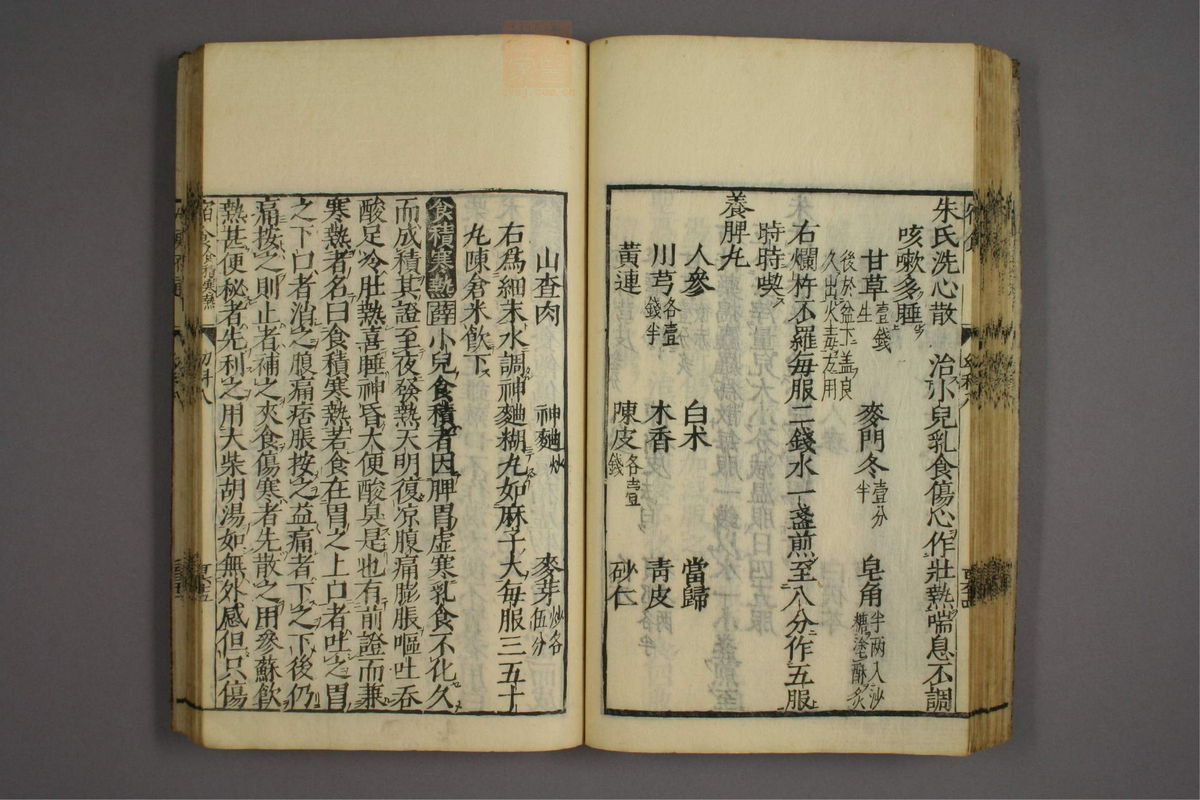 朱氏洗心散　治小兒乳食傷心作壯熱喘息不調
咳嗽多睡
甘草壹錢生　麥門冬壹分半　皂角半两入沙糖塗酥炙
後於盆下盖良久出火毒方用
右爛杵不羅每服二錢水一盞煎至八分作五服
時時喫
養脾丸
人參　白术　當歸
川芎各壹錢半　木香　青皮
黃連　陳皮各壹錢　砂仁
山查肉　神麯炒　麥芽炒各伍分
右為細末水調神麯糊丸如麻子大每服三五十
丸陳倉米飲下
食積寒熱薛小兒食積者因脾胃虛寒乳食不化久
而成積其證至夜發熱天明復凉腹痛膨脹嘔吐吞
酸足冷肚熱喜睡神昏大便酸臭是也有前證而兼
寒熱者名曰食積寒熱若食在胃之上口者吐之胃
之下口者消之腹痛痞脹按之益痛者下之下後仍
痛按之則止者補之夾食傷寒者先散之用參蘇飲
熱甚便秘者先利之用大柴胡湯如無外感但只傷